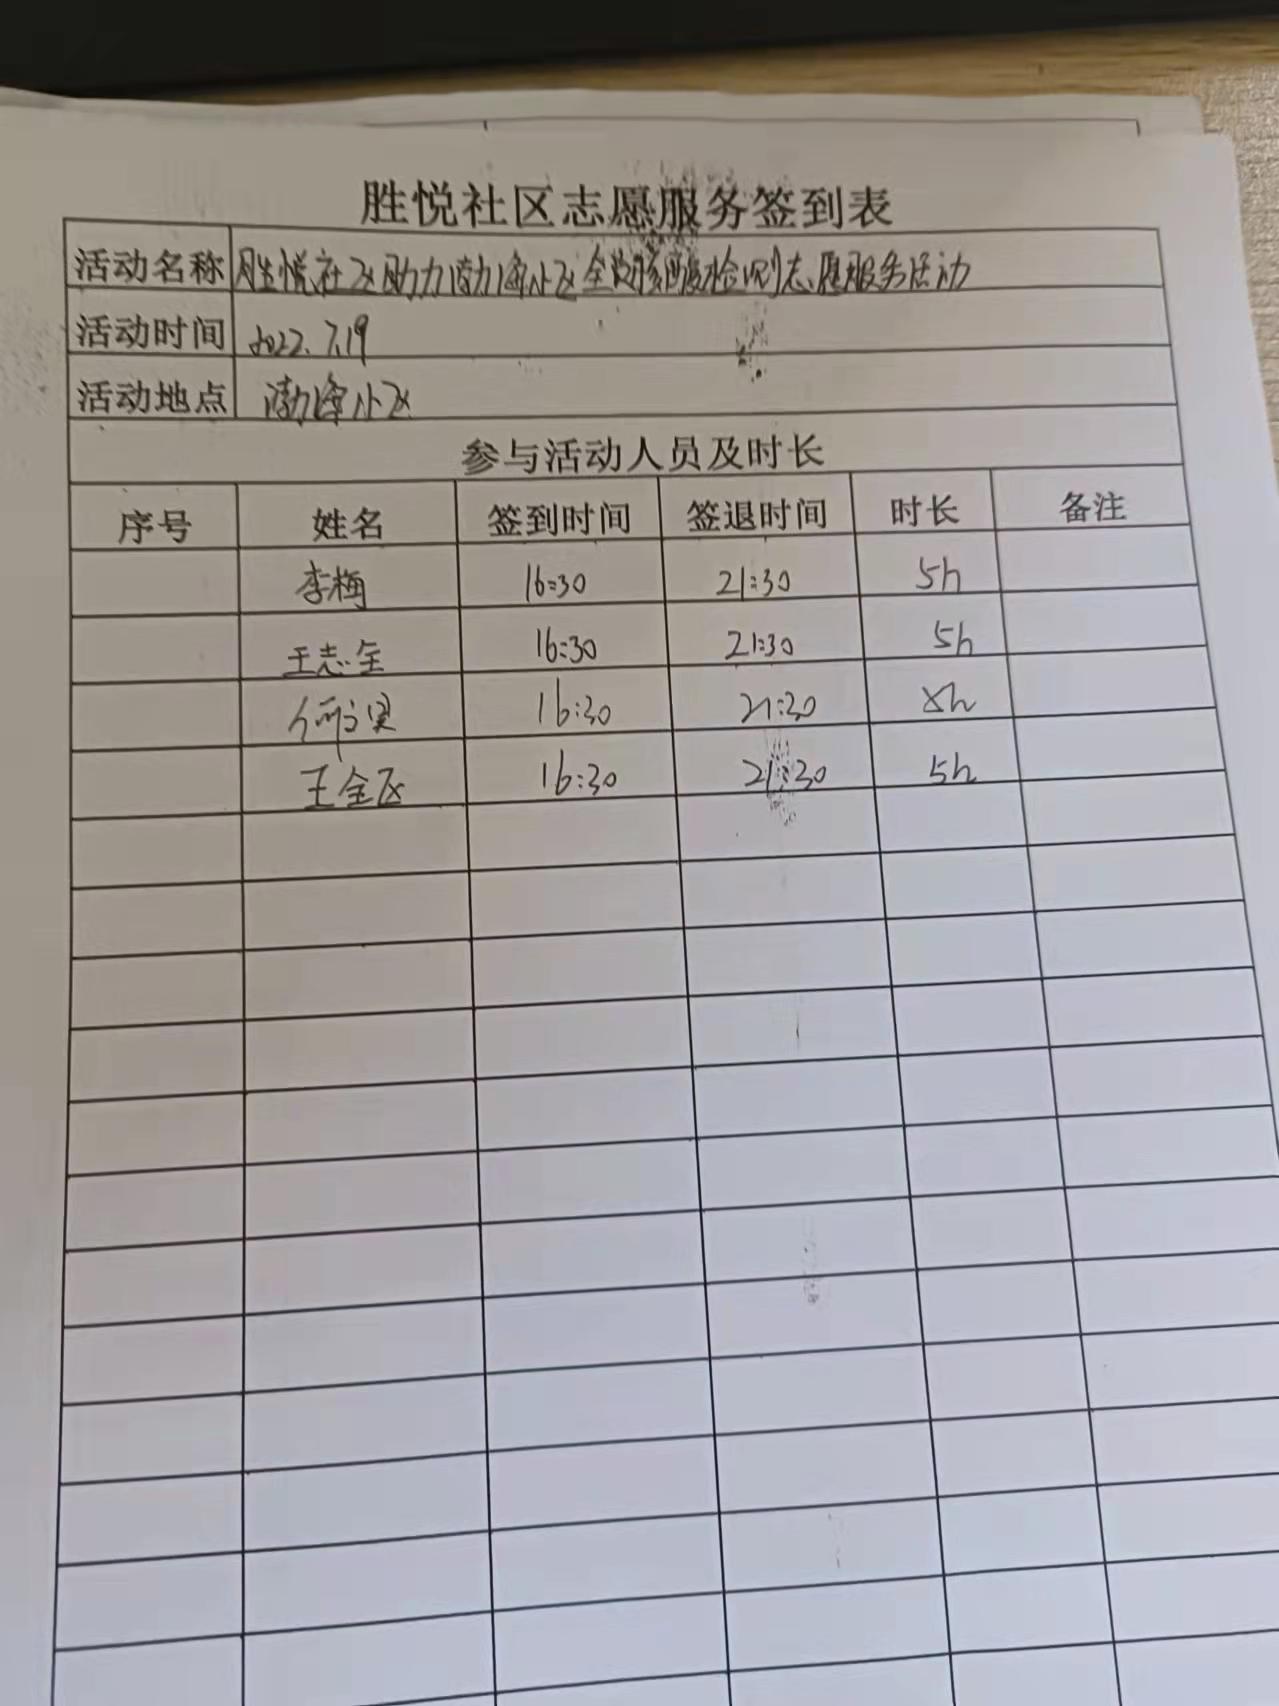 胜悦社区志愿服务签到表
活动名称 胜悦社区助力渤海小区全员核酸检测志愿服务活动
活动时间 2022.7.19
活动地点 渤海小区
参与活动人员及时长
序号 姓名 签到时间 签退时间 时长 备注
李梅 16:30 21:30 5h
王志全 16:30 21:30 5h
16:30 21:30 5h
王全 16:30 21:30 5h